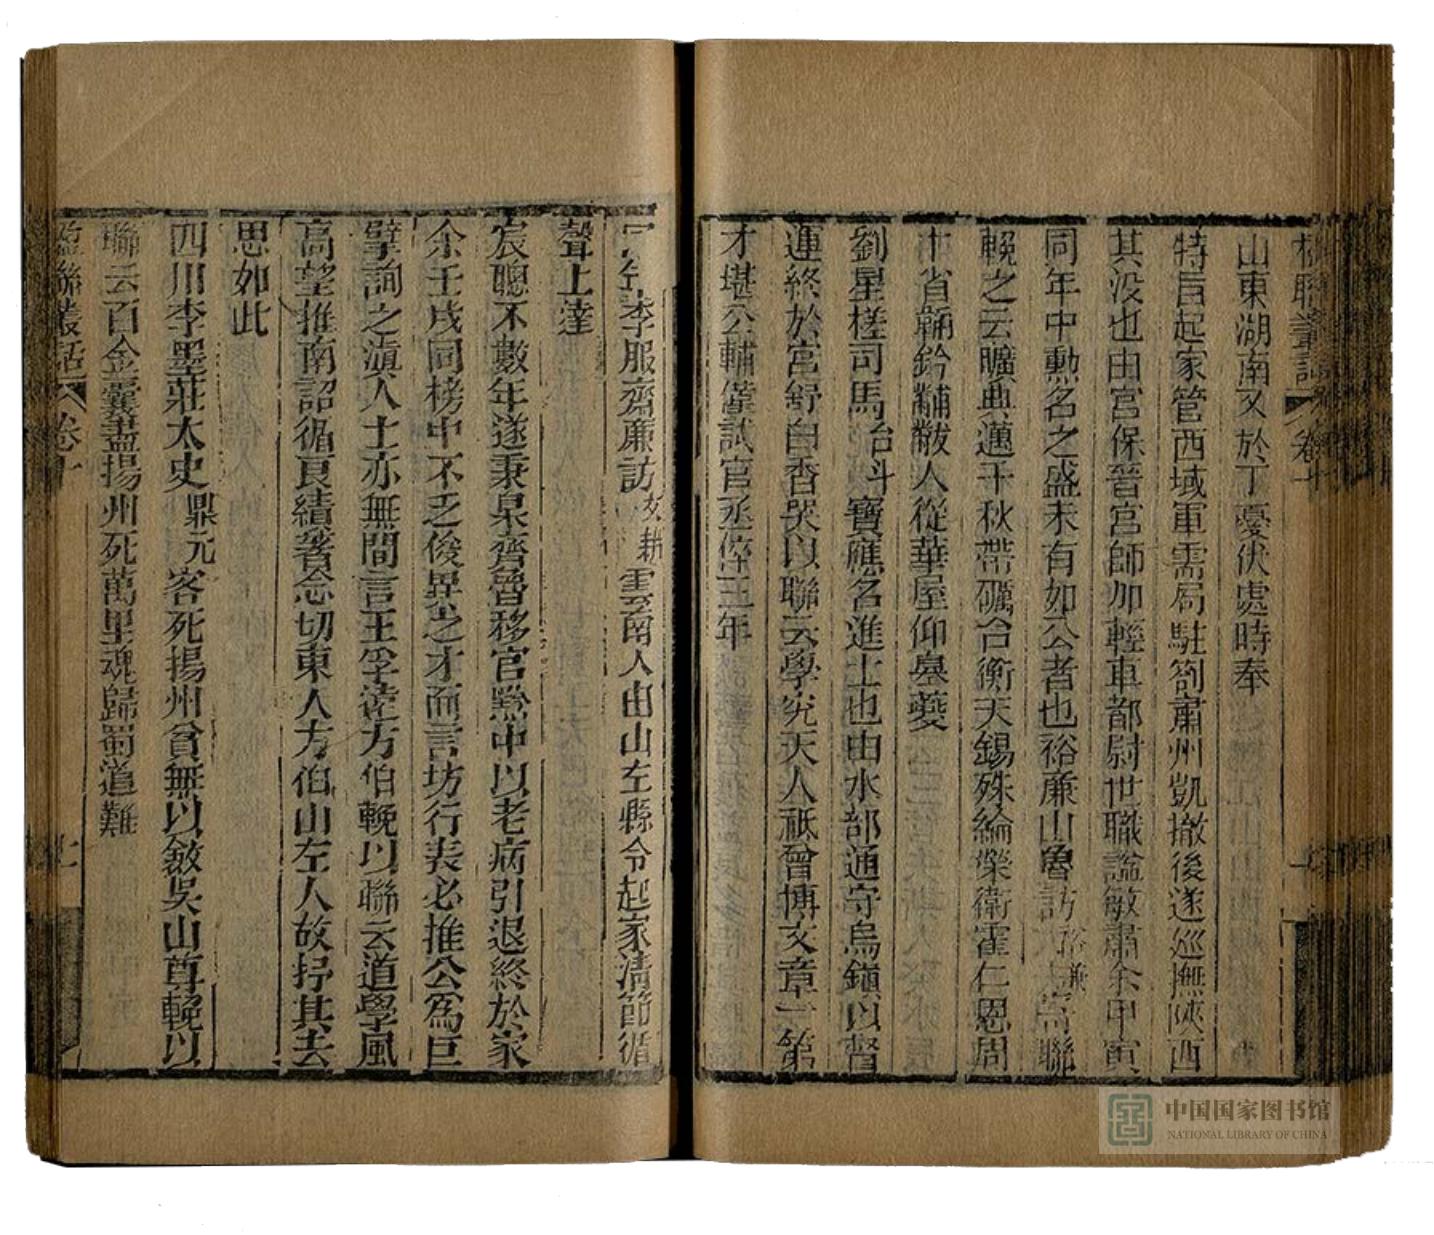 楹聯叢話 卷十
山東湖南又於丁憂伏處時奉
特旨起家管西域軍需局駐劄肅州凱撤後遂巡撫陝西
其没也由宮保晉宮師加輕車都尉世職謚敏肅余甲寅
同年中勳名之盛未有如公者也裕廉山魯訪裕謙寄聯
輓之云曠典邁千秋帶礪台衡天錫殊綸榮衛霍仁恩周
十省韜鈐黼黻人從華屋仰皋夔
劉星槎司馬台斗寶應名進士也由水部通守烏鎮以督
運終於官舒白香哭以聯云學究天人祗曾博文章一第
才堪公輔僅試官丞倅三年
李服齋廉訪文耕雲南人由山左縣令起家清節循
聲上達
宸聰不數年遂秉臬齊魯移官黔中以老病引退終於家
余壬戌同榜中不乏俊異之才而言坊行表必推公爲巨
擘詢之滇人士亦無閒言王孚遠方伯輓以聯云道學風
高望推南詔循良績著念切東人方伯山左人故抒其去
思如此
四川李墨莊太史鼎元客死揚州貧無以斂吳山尊輓以
聯云百金囊盡揚州死萬里魂歸蜀道難
楹聯叢話 卷十
中国国家图书馆
NATIONAL LIBRARY OF CHINA